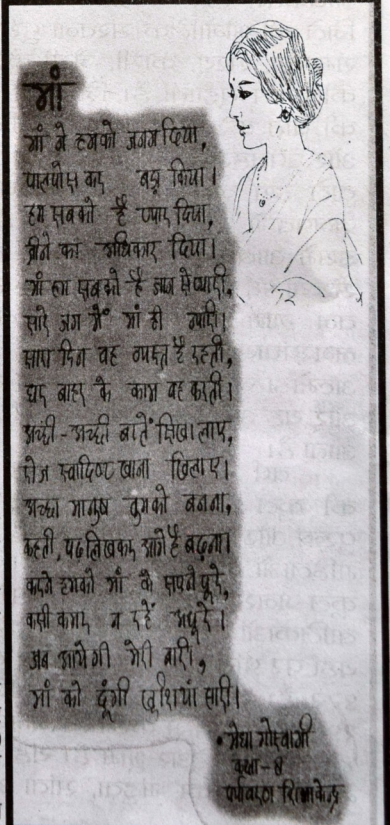 मां
मां ने हमको जनम दिया,
पालपोस कर बड़ा किया।
हम सबको है प्यार दिया,
जीने का अधिकार दिया।
मां हम सबको है जान से प्यारी,
सारे जग में मां ही न्यारी।
सारा दिन वह व्यस्त है रहती,
घर बाहर के काम वह करती।
अच्छी-अच्छी बातें सिखालाए,
रोज स्वादिष्ट खाना खिलाए।
अच्छा मानुष तुमको बनना,
कहती, पढ़ लिखकर आगे है बढ़ना।
करने हमको मां के सपने पूरे,
कसी कमर न रहें अधूरे।
जब आयेगी मेरी बारी,
मां को दूंगी खुशियां सारी।
• मेघा गोस्वामी
कक्षा-8
पर्यावरण शिक्षा केन्द्र